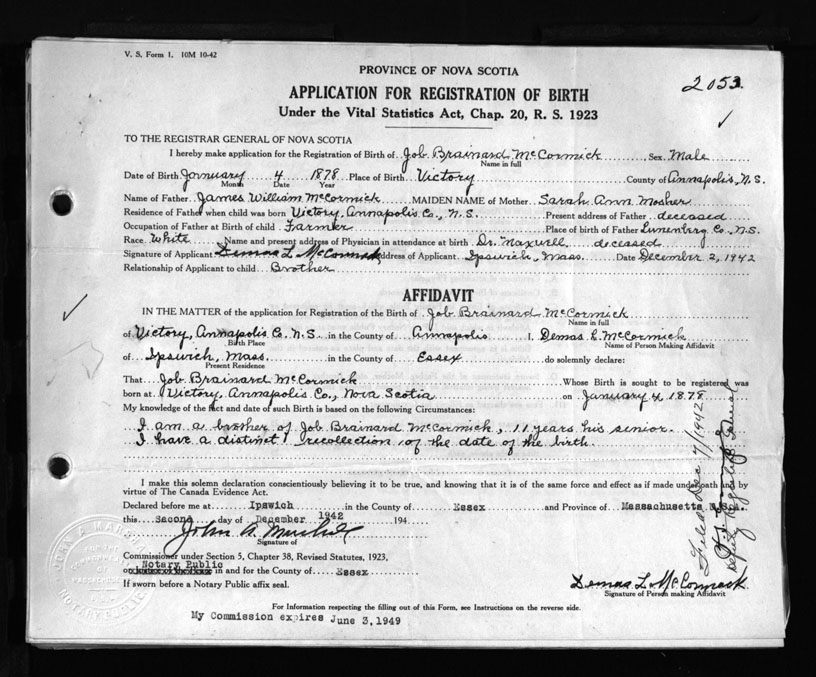 V. S. Form 1. 10M 10-42
PROVINCE OF NOVA SCOTIA
2053
APPLICATION FOR REGISTRATION OF BIRTH
Under the Vital Statistics Act, Chap. 20, R. S. 1923
TO THE REGISTRAR GENERAL OF NOVA SCOTIA
I hereby make application for the Registration of Birth of Job Brainard McCormick Sex Male
Name in full
Date of Birth January 4 1878 Place of Birth Victory County of Annapolis, N.S.
Month Date Year
Name of Father James William McCormick MAIDEN NAME of Mother Sarah Ann Mosher
Residence of Father when child was born Victory, Annapolis Co., N.S. Present address of Father deceased
Occupation of Father at Birth of child Farmer Place of birth of Father Lunenbrg Co., N.S.
Race White Name and present address of Physician in attendance at birth Dr. Maxwell deceased
Signature of Applicant Demas L. McCormack Address of Applicant Ipswich, Mass. Date December 2, 1942
Relationship of Applicant to child Brother
AFFIDAVIT
IN THE MATTER of the application for Registration of the Birth of Job Brainard McCormick
Name in full
of Victory, Annapolis Co. N.S. in the County of Annapolis I, Demas L. McCormick
Birth Place Name of Person Making Affidavit
of Ipswich, Mass. in the County of Essex do solemnly declare:
Present Residence
That Job Brainard McCormick Whose Birth is sought to be registered was
born at Victory, Annapolis Co., Nova Scotia on January 4, 1878
My knowledge of the fact and date of such Birth is based on the following Circumstances:
I am a brother of Job Brainard McCormick, 11 years his senior.
I have a distinct recollection of the date of the birth.
I make this solemn declaration conscientiously believing it to be true, and knowing that it is of the same force and effect as if made under oath and by
virtue of The Canada Evidence Act.
Declared before me at Ipswich in the County of Essex and Province of Massachusetts
this Second day of December 1942 194
Signature of
Commissioner under Section 5, Chapter 38, Revised Statutes, 1923,
Notary Public
in and for the County of Essex
If sworn before a Notary Public affix seal.
Demas L. McCormack
Signature of Person making Affidavit
For Information respecting the filling out of this Form, see Instructions on the reverse side.
My Commission expires June 3, 1949
Filed Dec 7/1942
NOTARY PUBLIC